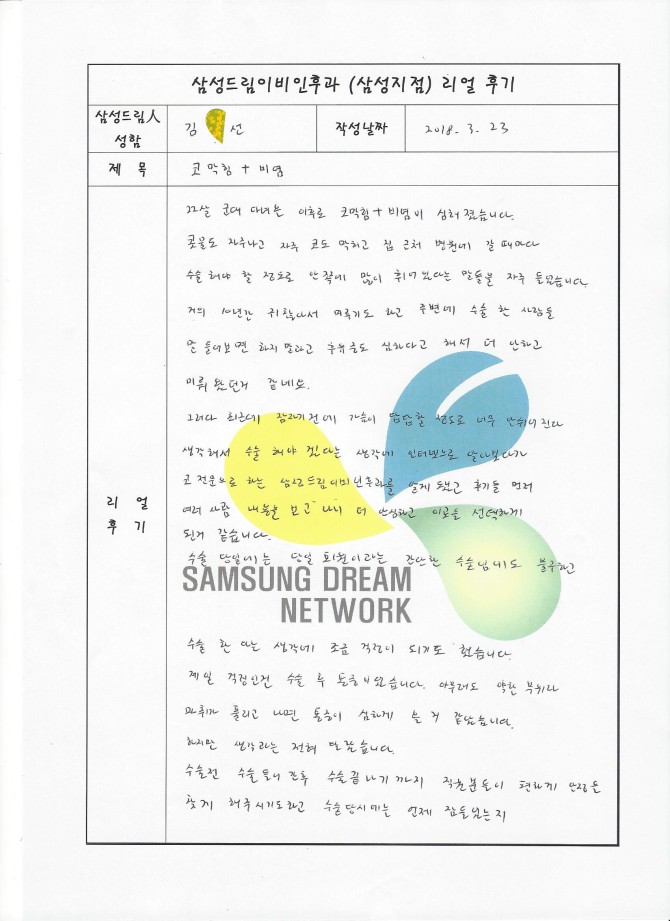 삼성드림이비인후과 (삼성지점) 리얼 후기
삼성드림人 성함
김 선
작성날짜
2018. 3. 23
제 목
코막힘 + 비염
리 얼 후 기
22살 군대 다녀온 이후로 코막힘 + 비염이 심해졌습니다.
콧물도 자주나고 자주 코도 막히고 집 근처 병원에 갈때마다
수술해야 할 정도로 안쪽에 많이 휘어있다는 말들을 자주 들었습니다.
거의 10년간 귀찮아서 미루기도 하고 주변에 수술 한 사람들
말 들어보면 하지말라고 후유증도 심하다고 해서 더 안하고
미뤄 왔던거 같네요.
그러다 최근에 잠자기전에 가슴이 답답할 정도로 너무 안쉬어진다
생각해서 수술 해야 겠다는 생각에 인터넷으로 알아보다가
코 전문으로 하는 삼성드림이비인후과를 알게 됐고 후기들 먼저
여러 사람 내용을 보고 나니 더 안심하고 이곳을 선택하게
된거 같습니다.
수술 당일에는 당일 퇴원이라는 간단한 수술임에도 불구하고
SAMSUNG DREAM
NETWORK
수술 한다는 생각에 조금 걱정이 되기도 했습니다.
제일 걱정인건 수술 후 통증이였습니다. 아무래도 약한 부위라
마취가 풀리고 나면 통증이 심하게 올 거 같았습니다.
하지만 생각과는 전혀 달랐습니다.
수술전 수술들어간후 수술끝나기까지 직원분들이 편하게 안정을
찾게 해주시기도하고 수술당시에는 언제 잠들었는지